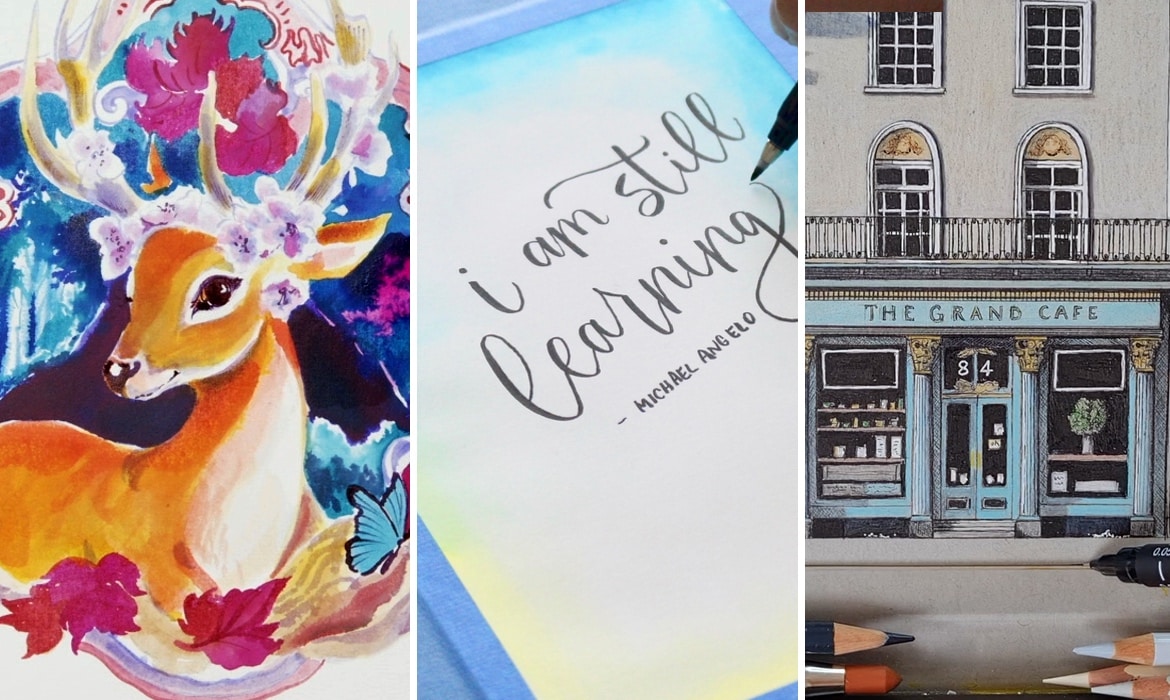 i am still
learning
- MICHAEL ANGELO
THE GRAND CAFE
84
0.05